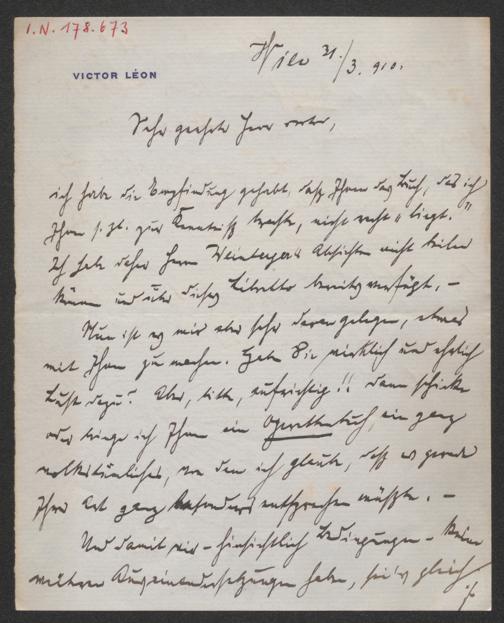 I.N. 178.673
VICTOR LÉON
Wien 31./3. 910.
Sehr geehrter Herr
ich habe die Empfindung gehabt, dass Ihnen das Buch, das ich
Ihnen s. Zt. zur Kenntniß brachte, nicht recht "liegt."
Ich habe daher Herrn Absichten nicht teilen
können und über dieses Libretto bereits verfügt, –
Nun ist es mir aber sehr daran gelegen, etwas
mit Ihnen zu machen. Haben Sie wirklich und ehrlich
Lust dazu? Aber, bitte, aufrichtig!! dann schicke
oder bringe ich Ihnen ein Operettenbuch, ein ganz
volkstümliches, von dem ich glaube, daß es gerade
Ihrer Art ganz besonders entsprechen müßte. –
Und damit wir – hinsichtlich Bedingungen – keine
weiteren Auseinandersetzungen haben, sei's gleich
./.